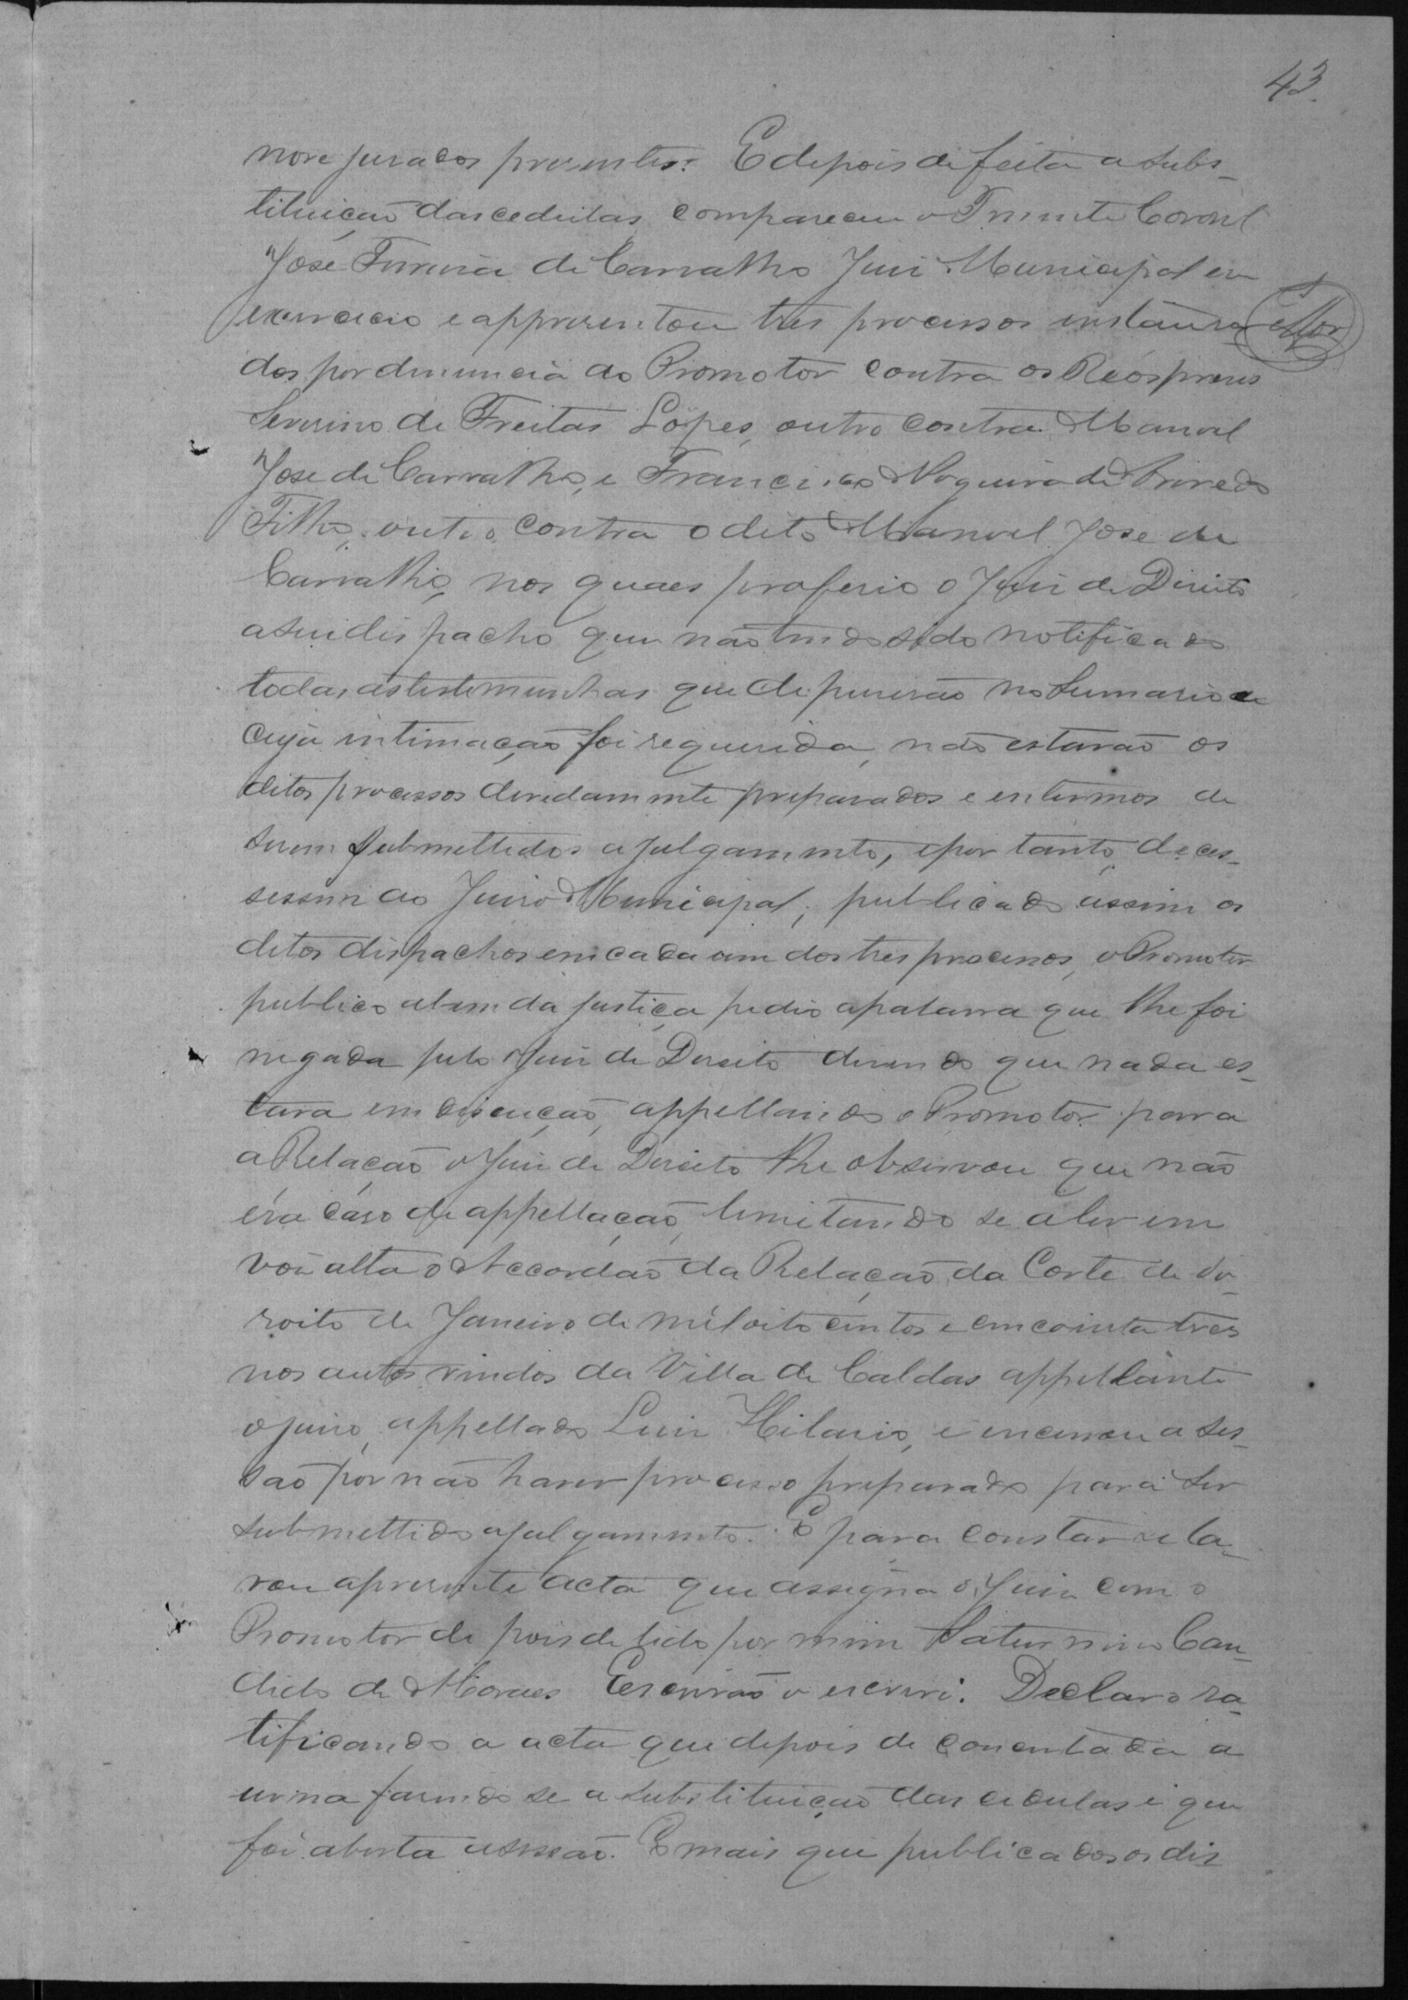 43
nove jurados presentes. E depois de feita a subs-
tituição das cedulas, compareceu o Tenente Coronel
José Ferreira de Carvalho Juiz Municipal em
exercicio e appresentou tres processos instaura-
dos por denuncia do Promotor contra os Réos presos
Severino de Freitas Lopes, outro contra Manoel
Jose de Carvalho, e Francisco Nogueira de
Filho, outro contra o dito Manoel Jose de
Carvalho, nos quaes proferio o Juiz de Direito
a seu dispacho que não tendo sido notificado
todas as testemunhas que depuserão no Sumario e
cuja intimação foi requerida, não estavão os
ditos processos devidamente preparados e em termos de
serem submettidos a julgamento, e por tanto, deces-
sessem ao Juizo Municipal; publicado assim os
ditos dispachos em cada um dos tres processos, o Promotor
publico a bem da justiça pedio a palavra que lhe foi
negada pelo Juiz de Direito dizendo que nada es-
tava em discução, appellando o Promotor para
a Relação o Juiz de Direito lhe observou que não
éra caso de appellação, limitando se a ler em
vóz alta o Accordão da Relação da Corte de de-
zoito de Janeiro de mil oito centos e cincoenta tres
nos autos vindos da Villa de Caldas appellante
o juizo, appellado Luiz Hilario, e encerrou a ses-
são por não haver processo preparado para ser
submettido a julgamento. E para constar se la-
vou a presente acta que assigna o Juiz com o
Promotor depois de lido por mim Saturnino Can-
dido de Moraes Escrivão o escrevi. Declaro ra-
tificando a acta que depois de concertada a
urna fazendo se a substituição das cedulas é que
foi aberta a sessão. E mais que publicados os dis